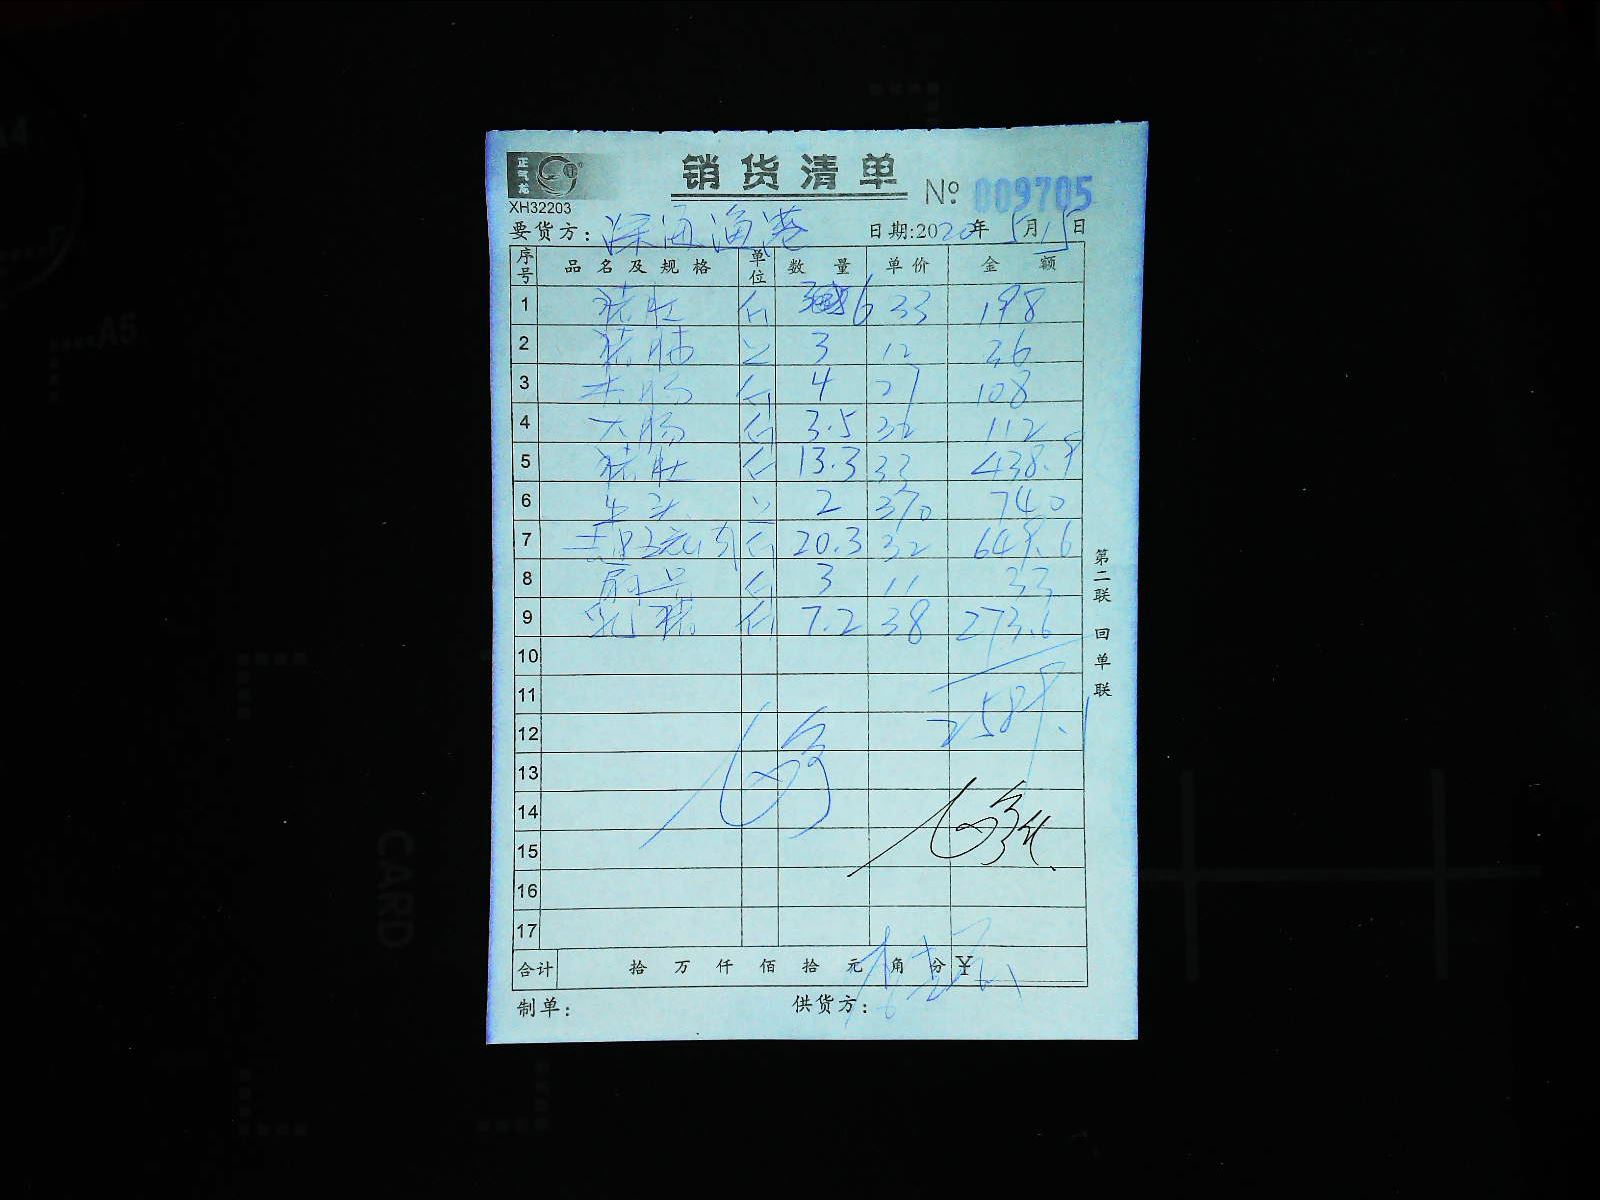 正气龙
销货清单
№ 009705
XH32203
要货方: 深海渔港 日期:2020年5月15日
序号 品名及规格 单位 数量 单价 金额
1 猪肚 斤 6 33 198
2 猪肺 只 3 12 36
3 斤 4 27 108
4 大肠 斤 3.5 32 112
5 猪肚 斤 13.3 33 438.9
6 2 370 740
7 斤 20.3 32 649.6
8 斤 3 11 33
9 乳猪 斤 7.2 38 273.6
10
11 2589.1
12
13
14
15
16
17
合计 拾 万 仟 佰 拾 元 角 分 ¥
制单: 供货方:
第二联 回单联
A4
A5
CARD